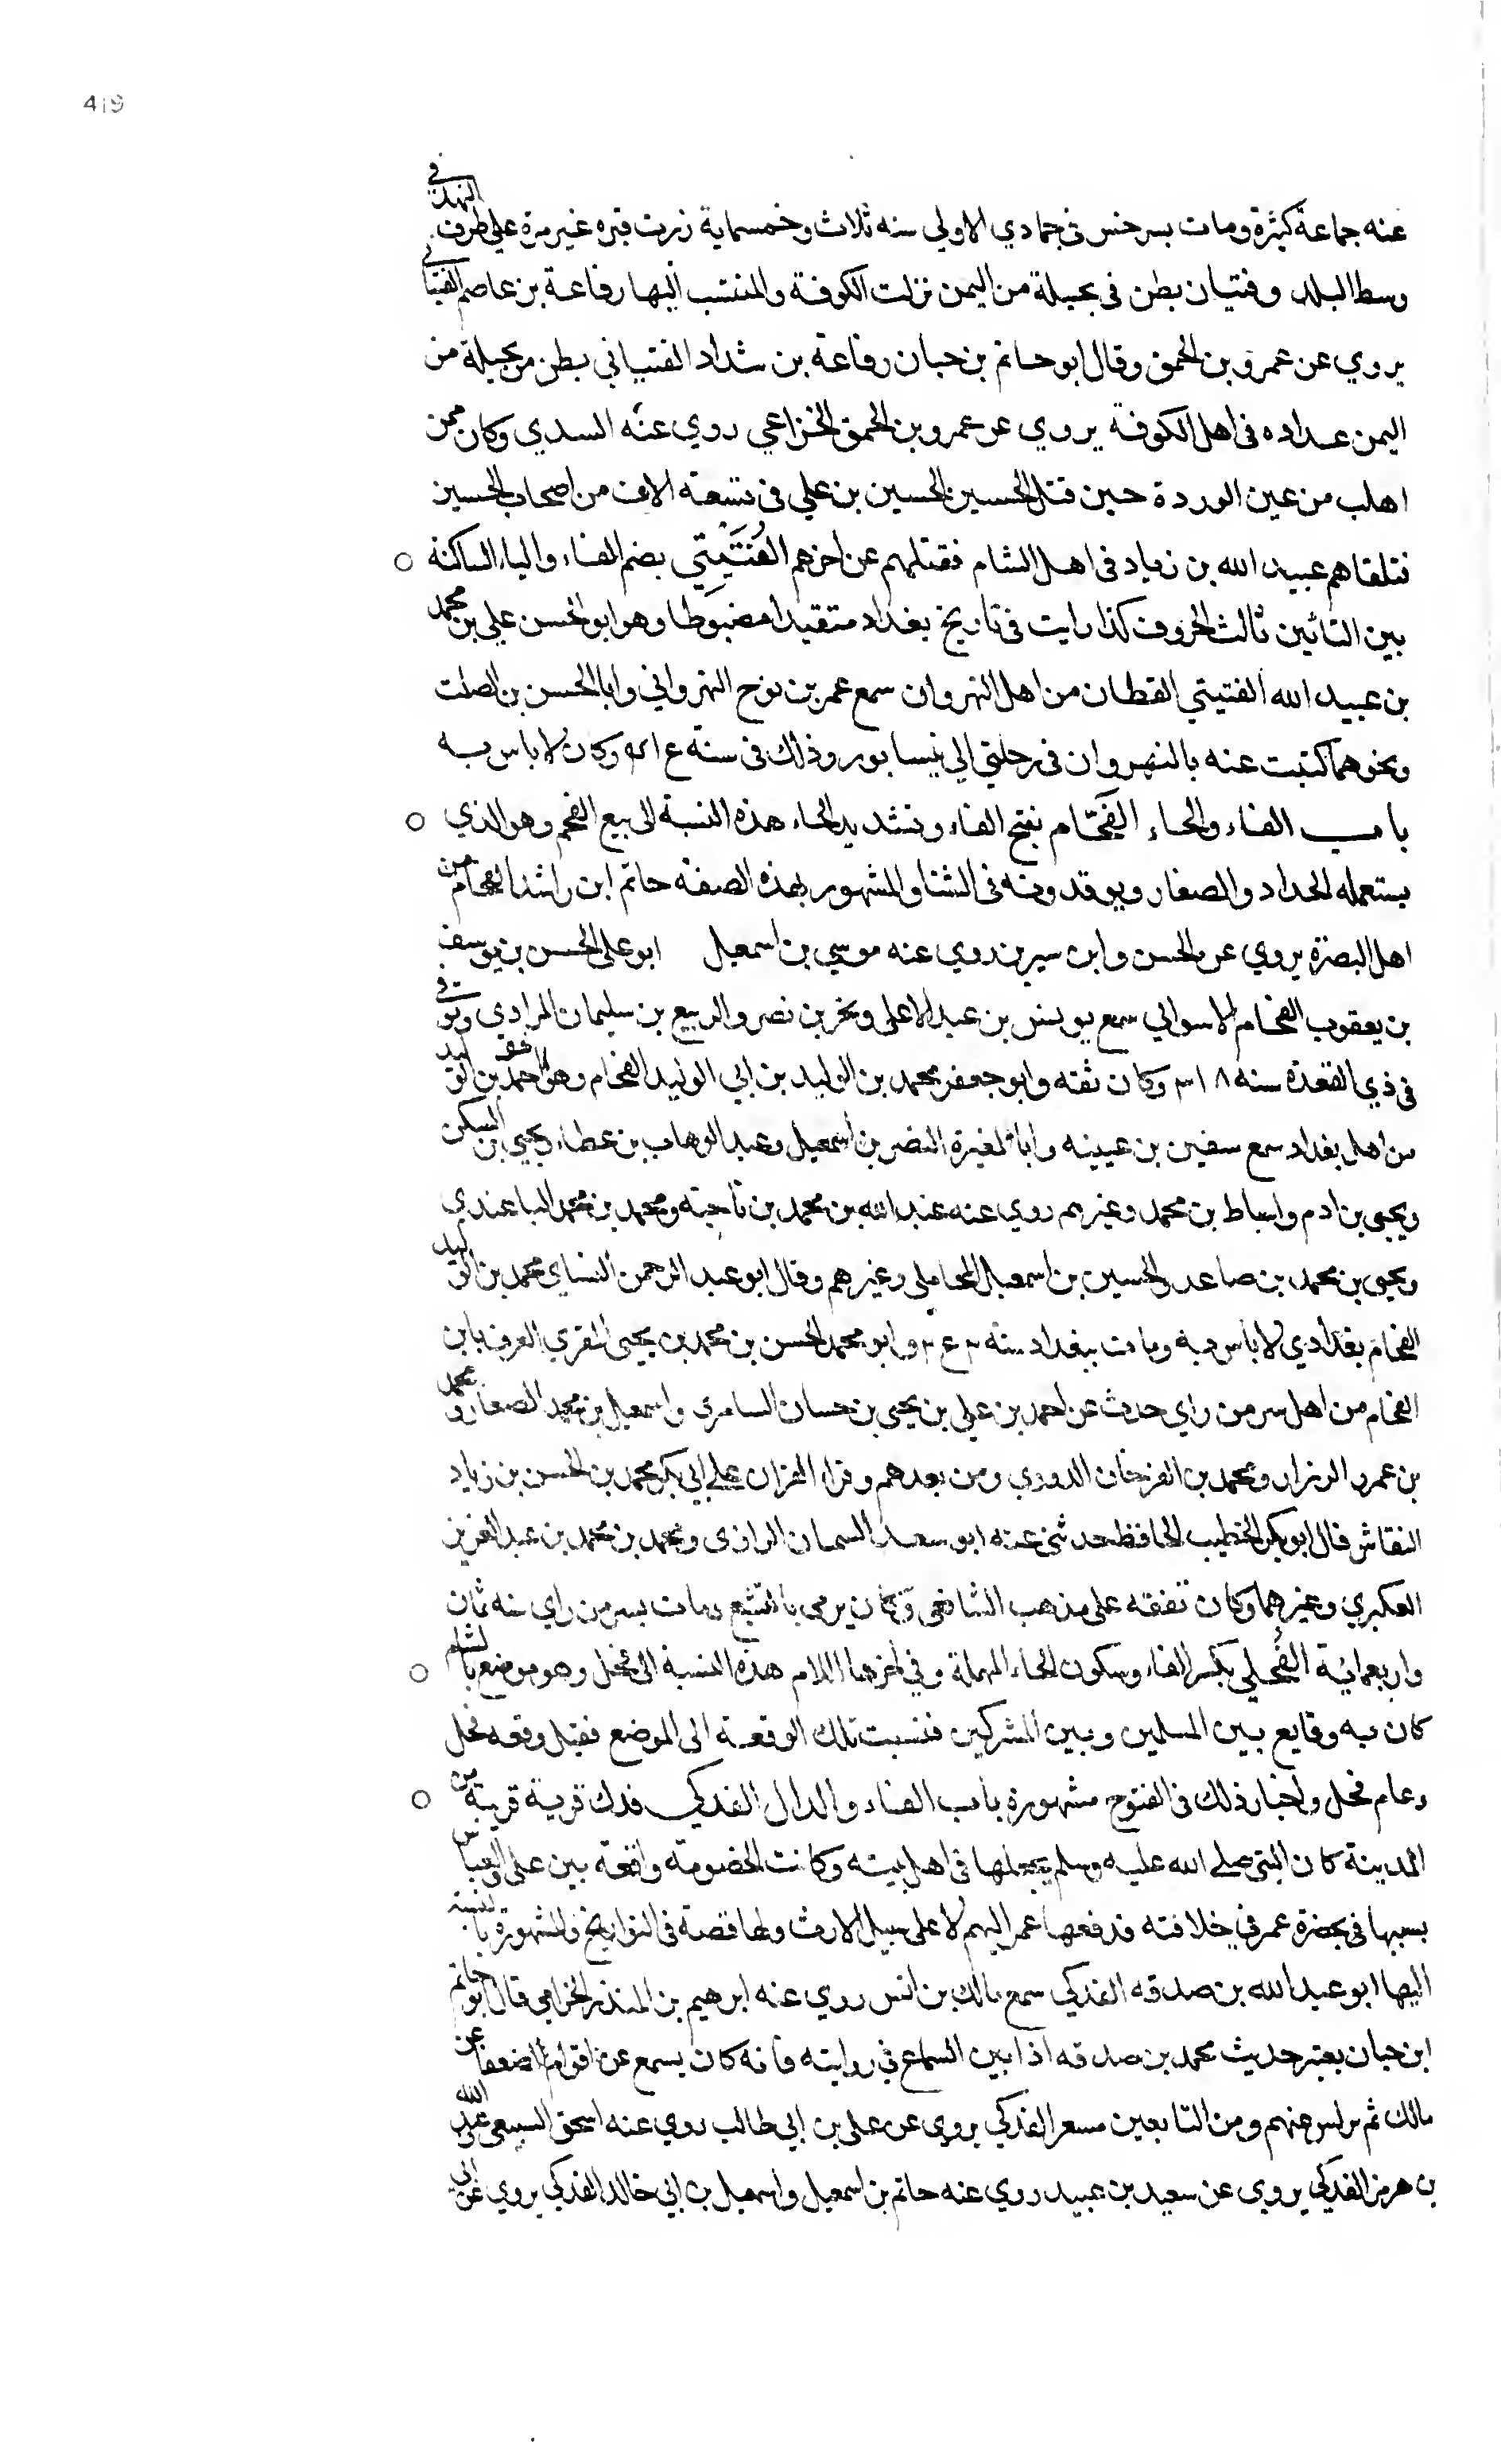 419
عنه جماعة كثيرة ومات بسرخس في جمادي الاولي سنه ثلاث وخمسماية زرت قبره غير مرة علي طرف النهر في
وسط البلد وفتيان بطن في بجيلة من اليمن نزلت الكوفة والمنتسب اليها رفاعة بن عاصم الفتيانى
يروي عن عمرو بن الحمق وقال ابو حاتم بن حبان رفاعة بن شداد الفتيانى بطن من بجيلة من
اليمن عداده فى اهل الكوفة يروي عن عمرو بن الحمق الخزاعي روي عنه السدي وكان ممن
اهلب من عين الوردة حين قتل الحسين الحسين بن علي فى تسعة الاف من اصحاب الحسين
فتلقاهم عبيد الله بن زياد فى اهل الشام فقتلهم عن اخرهم الفُتَيتي بضم الفاء والياء الساكنة
بين التائين ثالث الحروف كذا رايت فى تاريخ بغداد متقيدا مضبوطا وهو ابو الحسن علي بن محمد
بن عبيد الله الفتيتي القطان من اهل النهروان سمع عمر بن نوح النهرواني وابا الحسن بن الصلت
ونحوهما كتبت عنه بالنهروان فى رحلتي الي نيسابور وذلك فى سنة وكان لا باس به
باب الفاء والحاء الفَحّام بفتح الفاء وتشديد الحاء هذه النسبة الى بيع الفحم وهو الذي
يستعمله الحداد والصفار ويوقدونه فى الشتا والمشهور بهذه الصفه حاتم ابن راشد الفحام من
اهل البصرة يروي عن الحسن وابن سيرين روي عنه موسي بن اسمعيل ابو على الحسن بن يوسف
بن يعقوب الفحام الاسوالي سمع يونس بن عبد الاعلى وبحر بن نصر والربيع بن سليمان المرادى وتوفى
فى ذي القعدة سنه ٣١٨ وكان ثقه وابو جعفر محمد بن الوليد بن ابي الوليد الفحام وهو اخو احمد بن الوليد
من اهل بغداد سمع سفين بن عيينه وابا المغيرة النضر بن اسمعيل وعبد الوهاب بن عطاء ويحيي بن السكن
ويحيى بن ادم واسباط بن محمد وغيرهم روي عنه عبد الله بن محمد بن ناجية ومحمد بن محمد الباغندي
ويحيى بن محمد بن صاعد والحسين بن اسمعيل المحاملى وغيرهم وقال ابو عبد الرحمن النساى محمد بن الوليد
الفحام بغدادي لا باس به ومات ببغداد سنه وابو محمد الحسن بن محمد بن يحيى المقري العرف بابن
الفحام من اهل سر من راي حدث عن احمد بن علي بن يحيى بن حسان السامرى واسمعيل بن محمد الصفار ومحمد
بن عمرو الرزاز ومحمد بن الفرخان الدوري ومن بعدهم وقراء القران على ابى بكر محمد بن الحسن بن زياد
النقاش قال ابو بكر الخطيب الحافظ حدثنى عنه ابو سعد السمان الرازى ومحمد بن محمد بن عبد العزيز
العكبري وغيرهما وكان تفقه على مذهب الشافعى وكان يرمى بالتشيع ومات بسر من راي سنه ثمان
واربعمائة الفِحلي بكسر الفاء وسكون الحاء المهملة وفي اخرها اللام هذه النسبة الى فحل وهو موضع بالشام
كان به وقايع بين المسلمين وبين المشركين فنسبت تلك الوقعة الى الموضع فقيل وقعه فحل
وعام فحل واخبار ذلك فى الفتوح مشهورة باب الفاء والدال الفدكي فدك قرية قريبة من
المدينة كان النبى صلى الله عليه وسلم يجعلها فى اهل بيته وكانت الخصومة واقعة بين على والعباس
بسببها فى بحضرة عمر في خلافته فدفعها عمر اليهم لا على سبيل الارث ولها قصة فى التواريخ والمشهور بالنسبة
اليها ابو عبد الله بن صدقه الفدكي سمع مالك بن انس روي عنه ابرهيم بن المنذر الحزامي قال ابو حاتم
ابن حبان يعتبر حديث محمد بن صدقه اذا بين السماع في روايته فانه كان يسمع عن اقوام ضعفا عن
مالك ثم يدلس عنهم ومن التابعين مسعر الفدكي يروي عن على بن ابي طالب روي عنه اسحق السبيعى وعبد الله
بن هرمز الفدكى يروى عن سعيد بن عبيد روي عنه حاتم بن اسمعيل واسمعيل بن ابى خالد الفدكى يروي عن ابى